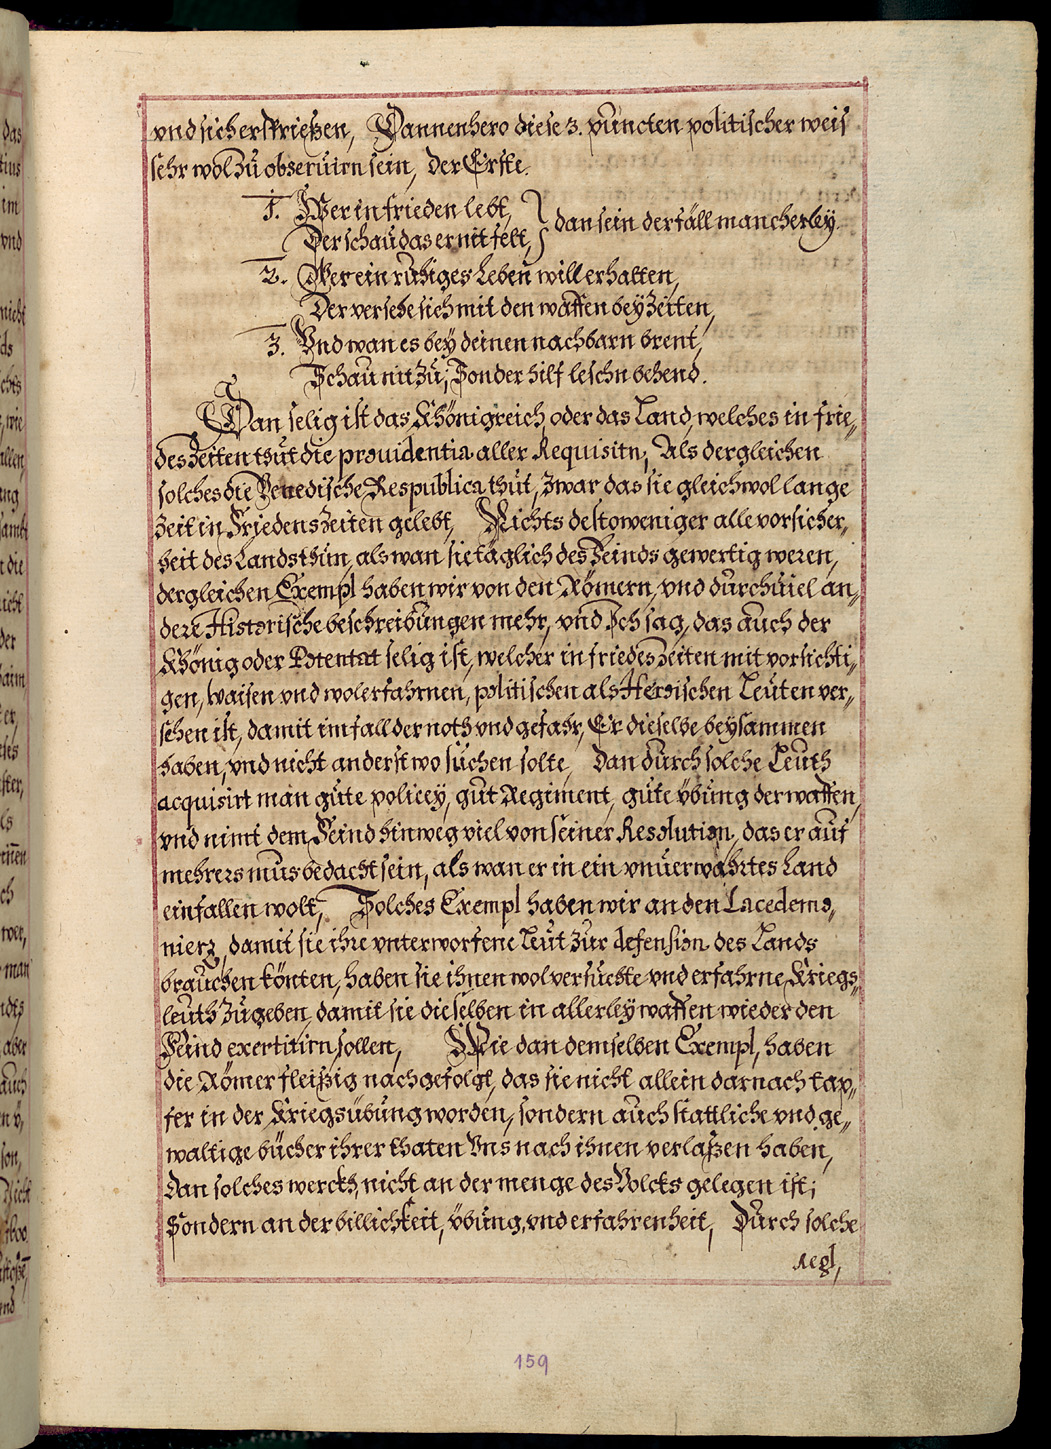 vnd sich erskrießen, Dannenhero diese 3. puncten politischer weis
sehr wol zu obseruirn sein, der Erste.
1. Wer in frieden lebt,
Der schau das er nit felt, } dan sein der fäll mancherley.
2. Wer ein ruhiges Leben will erhalten,
Der versehe sich mit den waffen bey Zeiten,
3. Vnd wan es bey deinen nachbarn brent,
Schau nit zu, Sonder hilf leschn behend.
Dan selig ist das Khönigreich oder das Land, welches in frie„
des Zeiten thut die prouidentia aller Requisitn, Als dergleichen
solches die Venedische Respublica thut, zwar das sie gleichwol lange
Zeit in Friedens Zeiten gelebt, Nichts destoweniger alle vorsicher„
heit des Lands thun, als wan sie täglich des Feinds gewertig weren,
dergleichen Exempl haben wir von den Römern, vnd durch uiel an„
dere Historische beschreibungen mehr, vnd Ich sag, das auch der
Khönig oder Potentat selig ist, welcher in friedes Zeiten mit vorsichti„
gen, waisen vnd wolerfahrnen, politischen als Heroischen Leuten ver„
sehen ist, damit im fall der noth vnd gefahr, Er dieselbe beysammen
haben, vnd nicht anderst wo suchen solte, Dan durch solche Leuth
acquisirt man gute policey, gut Regiment, gute vbung der waffen,
vnd nimt dem Feind hinweg viel von seiner Resolution, das er auf
mehrers mus bedacht sein, als wan er in ein vnuerwahrtes Land
einfallen wolt, Solches Exempl haben wir an den Lacedemo„
niern, damit sie ihre vnterworfene Leut zur defension des Lands
brauchen könten, haben sie ihnen wol versuchte vnd erfahrne Kriegs„
leuth zugeben, damit sie dieselben in allerley waffen wieder den
Feind exertitirn sollen, Wie dan demselben Exempl, haben
die Römer fleißig nachgefolgt, das sie nicht allein darnach tap„
fer in der Kriegsübung worden, sondern auch stattliche vnd ge„
waltige bücher ihrer thaten Vns nach ihnen verlaßen haben,
Dan solches werckh, nicht an der menge des Volcks gelegen ist;
Sondern an der billichkeit, vbung, vnd erfahrenheit, Durch solche
Regl,
159